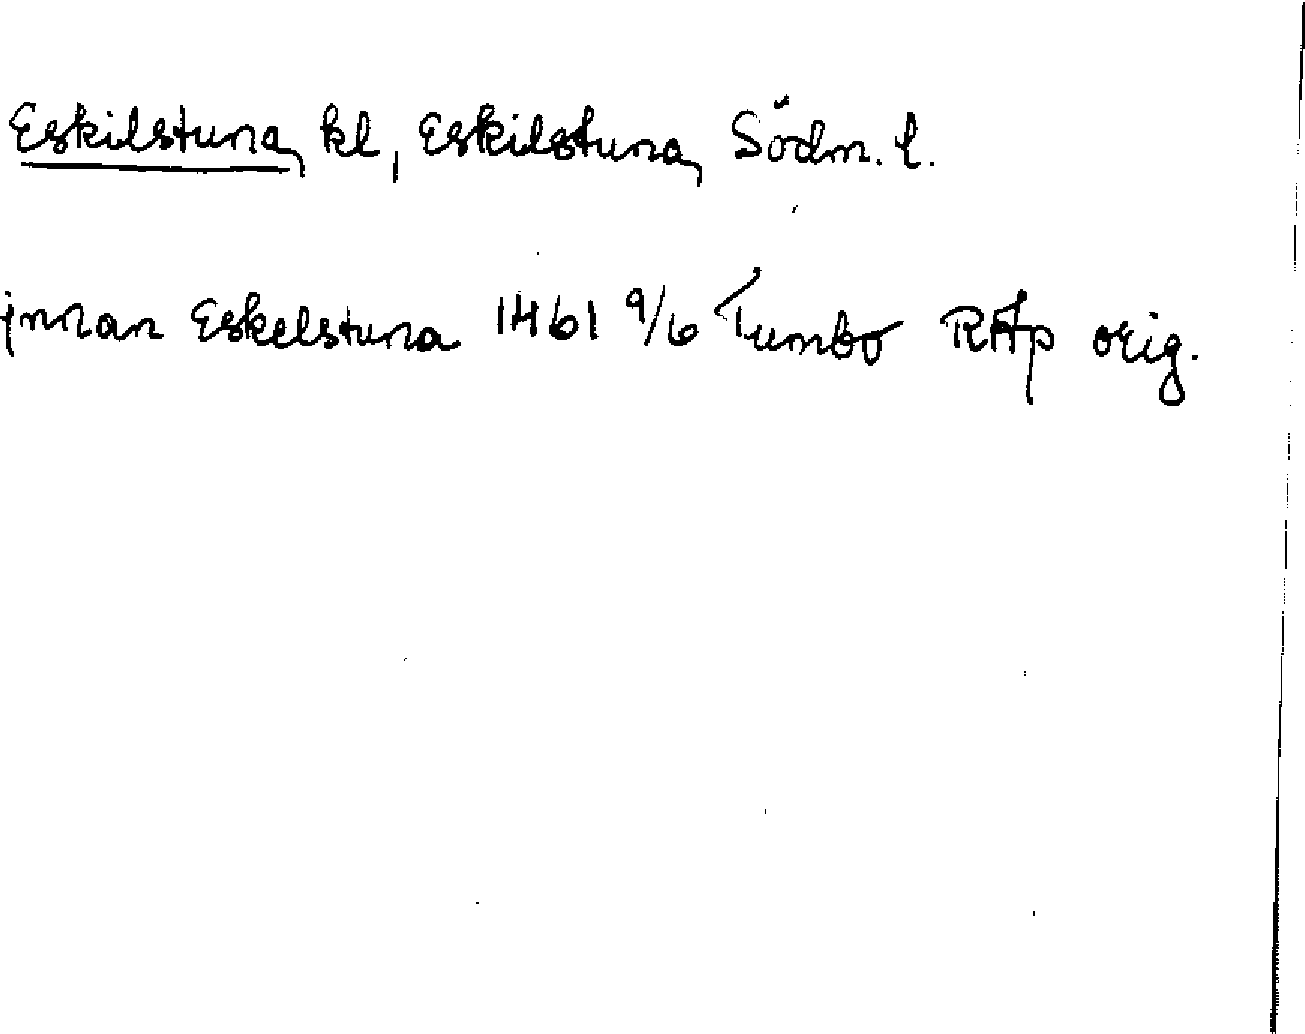 Eskilstuna, kl, Eskilstuna, Södm. l.
jnnan Eskelstuna 1461 9/6 Tumbo RAp orig.